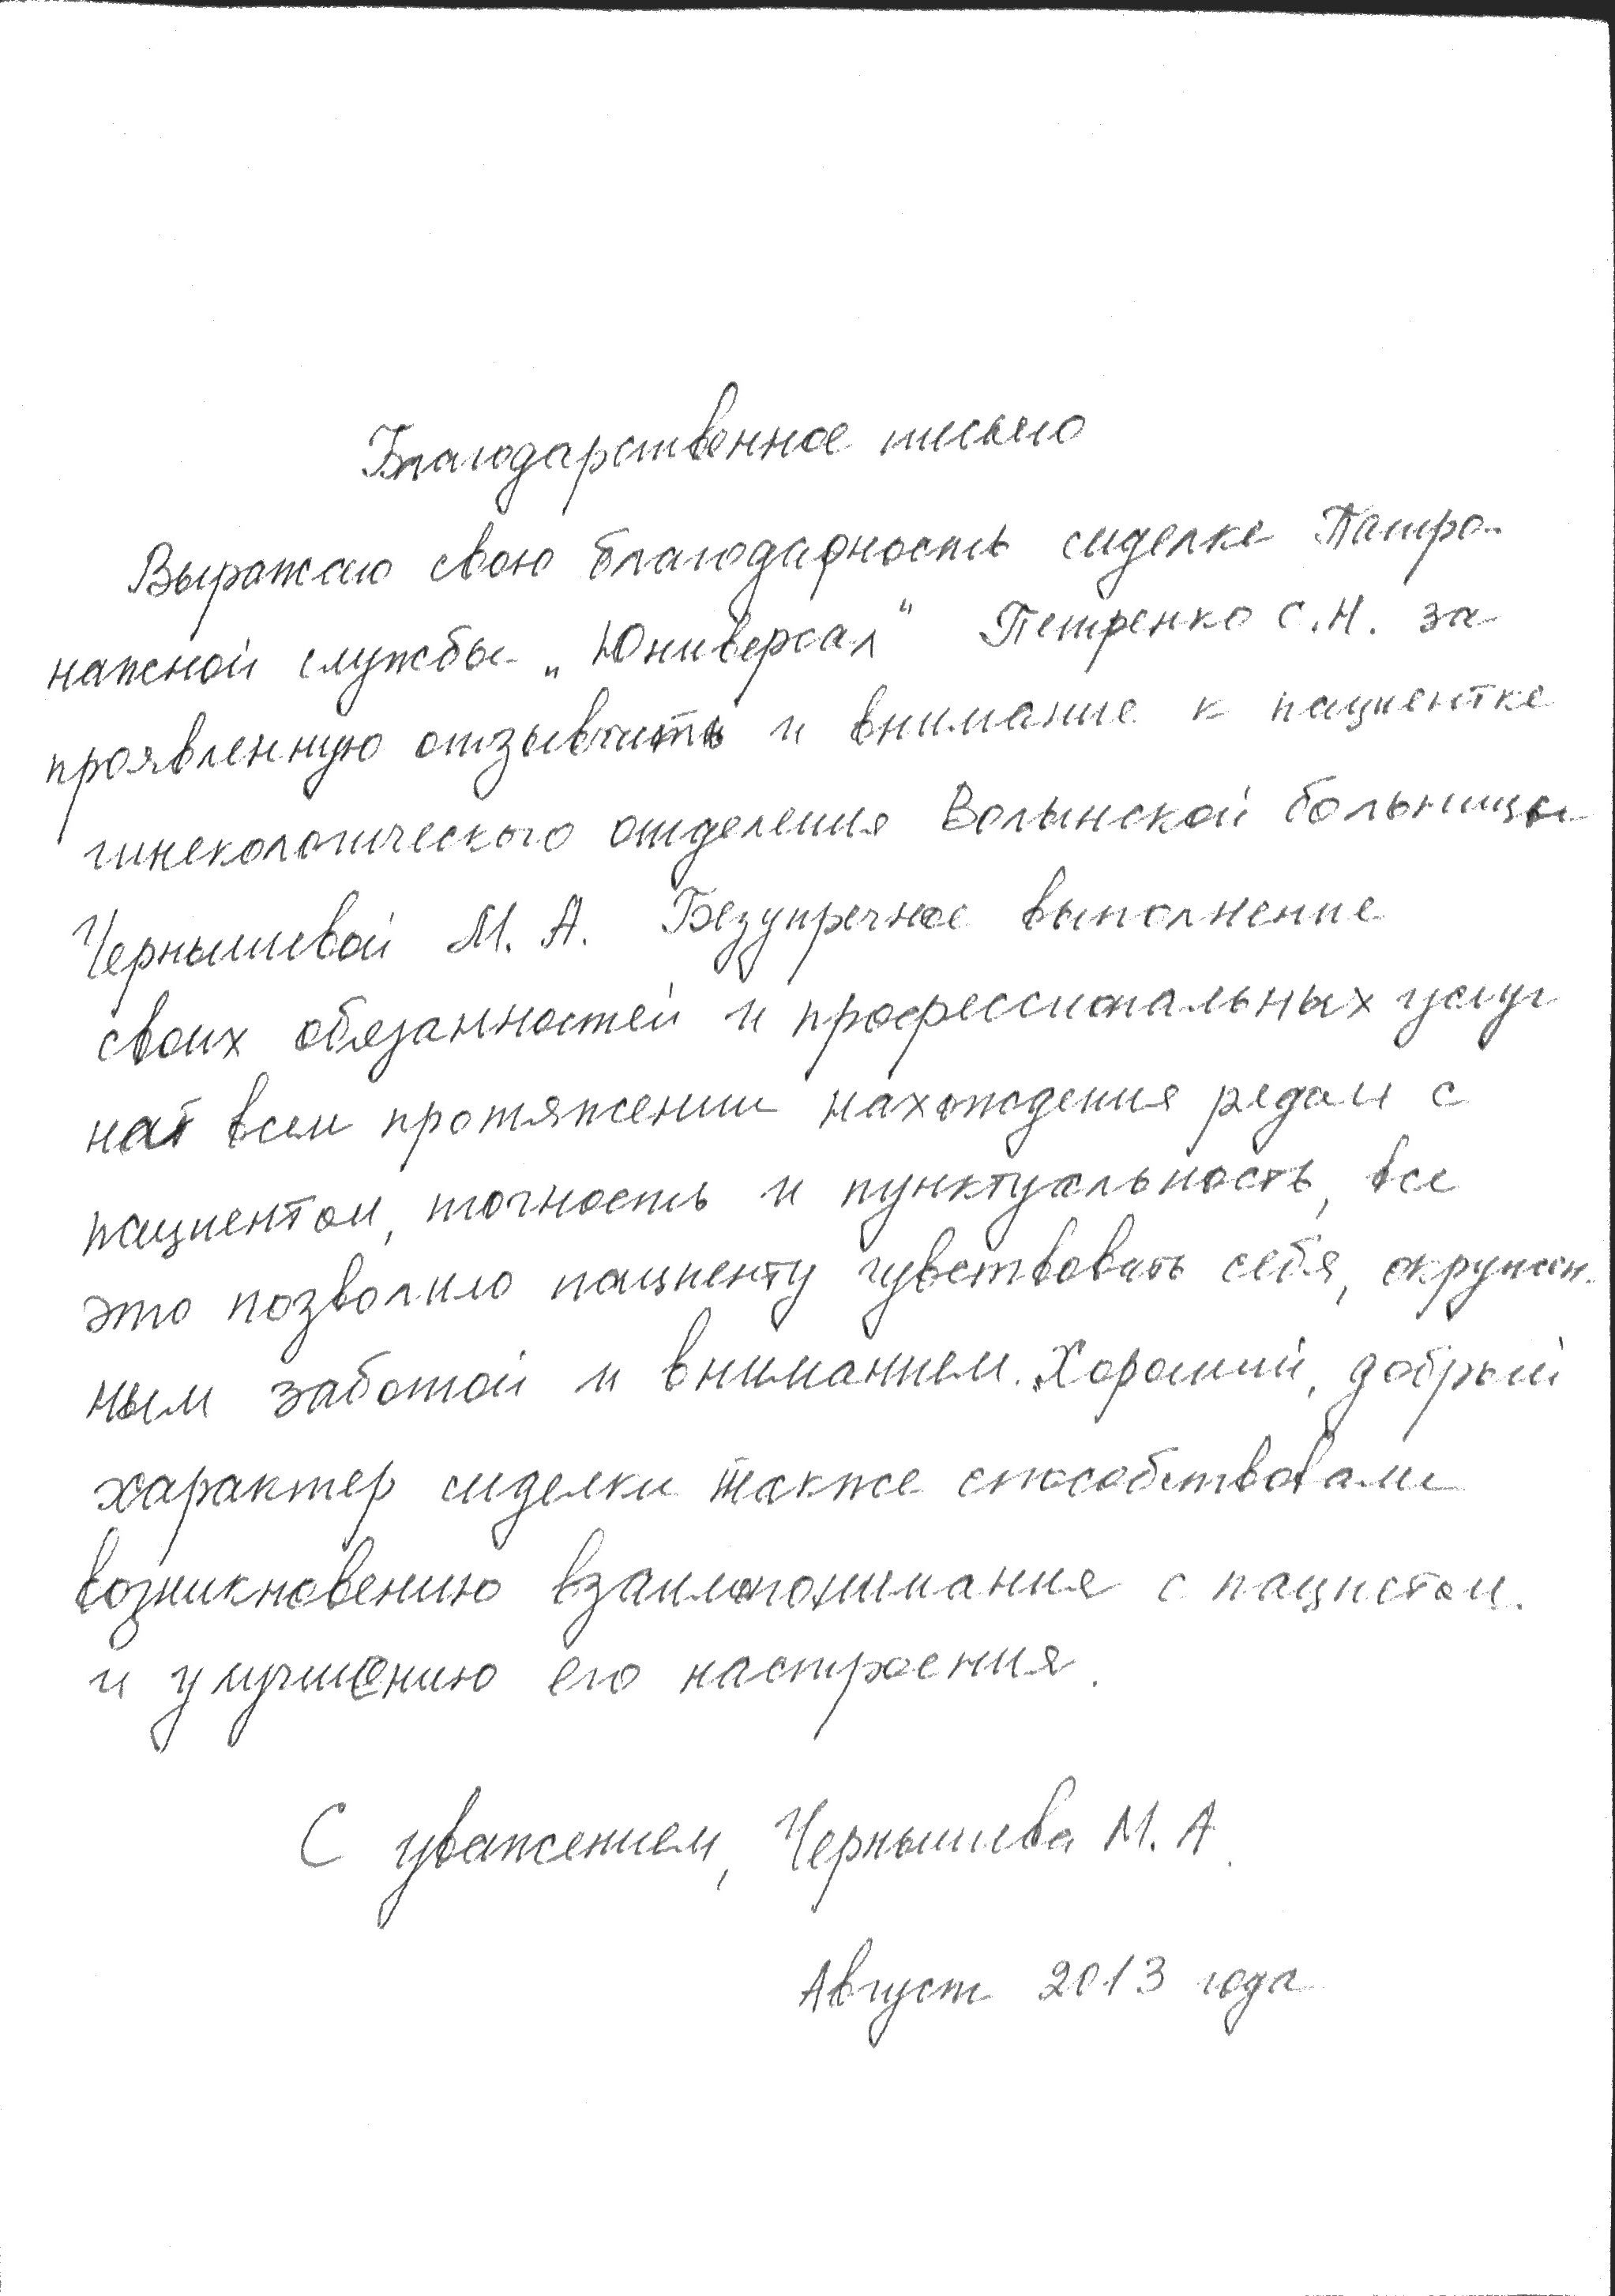 Благодарственное письмо
Выражаю свою благодарность сиделке Патро-
нажной службы „Юниверсал“ Петренко С.Н. за
проявленную отзывчить и внимание к пациентке
гинекологического отделения Волынской больницы
Чернышевой М. А. Безупречное выполнение
своих обязанностей и профессиональных услуг
на всем протяжении нахождения рядом с
пациентом, точность и пунктуальность, все
это позволило пациенту чувствовать себя, окружен-
ным заботой и вниманием. Хороший, добрый
характер сиделки также способствовали
возникновению взаимопонимания с пациетом.
и улучшению его настроения.
С уважением, Чернышева М. А.
Август 2013 года